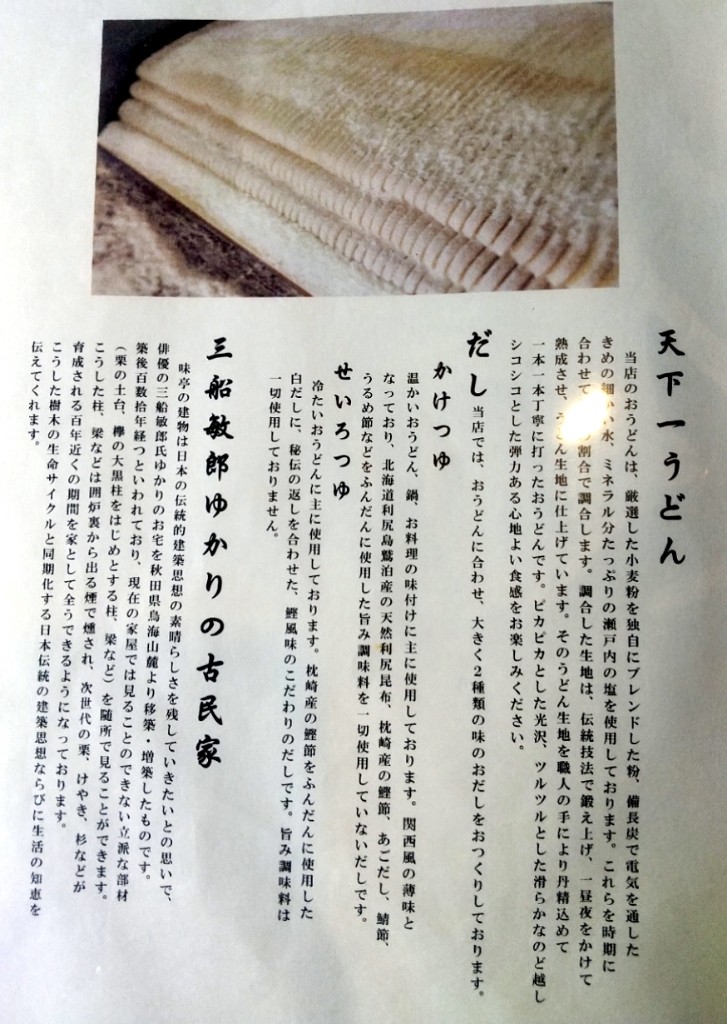 天下一うどん
当店のおうどんは、厳選した小麦粉を独自にブレンドした粉、備長炭で電気を通した
きめの細かい水、ミネラル分たっぷりの瀬戸内の塩を使用しております。これらを時期に
合わせて の割合で調合します。調合した生地は、伝統技法で鍛え上げ、一昼夜をかけて
熟成させ、うどん生地に仕上げています。そのうどん生地を職人の手により丹精込めて
一本一本丁寧に打ったおうどんです。ピカピカとした光沢、ツルツルとした滑らかなのど越し
シコシコとした弾力ある心地よい食感をお楽しみください。
だし 当店では、おうどんに合わせ、大きく2種類の味のおだしをおつくりしております。
かけつゆ
温かいおうどん、鍋、お料理の味付けに主に使用しております。関西風の薄味と
なっており、北海道利尻島鴛泊産の天然利尻昆布、枕崎産の鰹節、あごだし、鯖節、
うるめ節などをふんだんに使用した旨み調味料を一切使用していないだしです。
せいろつゆ
冷たいおうどんに主に使用しております。枕崎産の鰹節をふんだんに使用した
白だしに、秘伝の返しを合わせた、鰹風味のこだわりのだしです。旨み調味料は
一切使用しておりません。
三船敏郎ゆかりの古民家
味亭の建物は日本の伝統的建築思想の素晴らしさを残していきたいとの思いで、
俳優の三船敏郎氏ゆかりのお宅を秋田県鳥海山麓より移築・増築したものです。
築後百数拾年経つといわれており、現在の家屋では見ることのできない立派な部材
（栗の土台、欅の大黒柱をはじめとする柱、梁など）を随所で見ることができます。
こうした柱、梁などは囲炉裏から出る煙で燻され、次世代の栗、けやき、杉などが
育成される百年近くの期間を家として全うできるようになっております。
こうした樹木の生命サイクルと同期化する日本伝統の建築思想ならびに生活の知恵を
伝えてくれます。